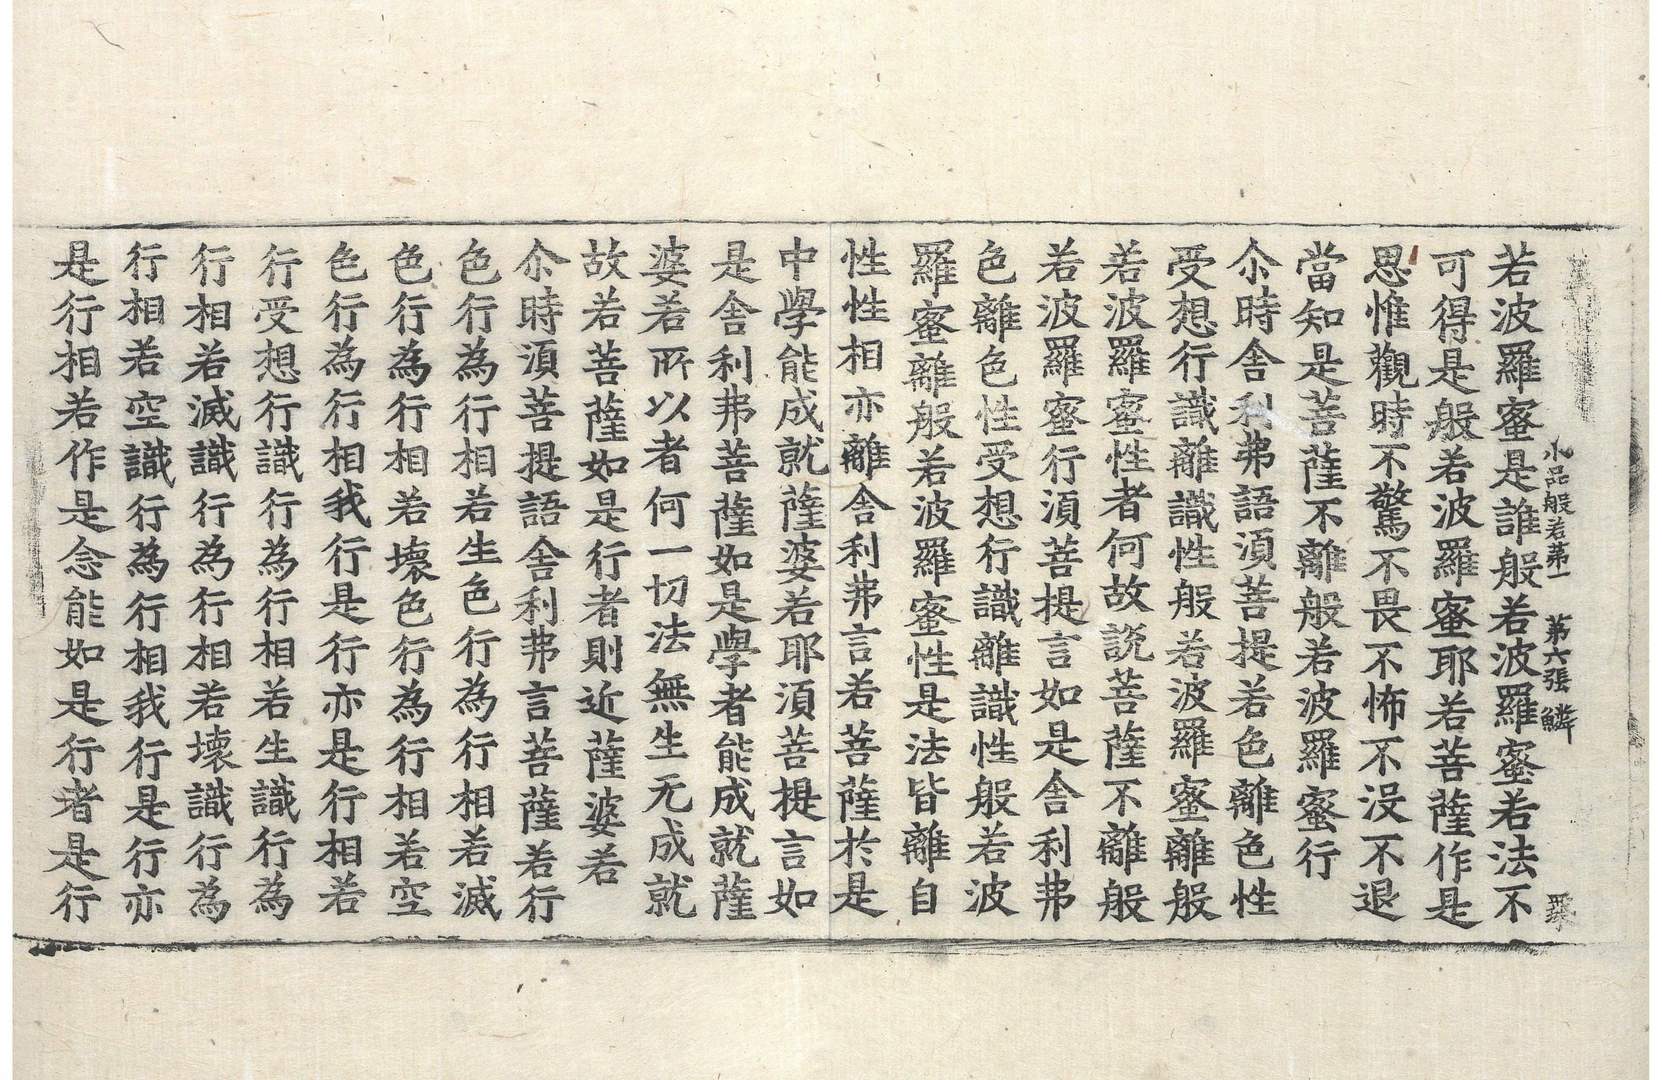 小品般若第一 第六張 鱗
若波羅蜜是誰般若波羅蜜若法不
可得是般若波羅蜜耶若菩薩作是
思惟觀時不驚不畏不怖不没不退
當知是菩薩不離般若波羅蜜行
尒時舍利弗語須菩提若色離色性
受想行識離識性般若波羅蜜離般
若波羅蜜性者何故說菩薩不離般
若波羅蜜行須菩提言如是舍利弗
色離色性受想行識離識性般若波
羅蜜離般若波羅蜜性是法皆離自
性性相亦離舍利弗言若菩薩於是
中學能成就薩婆若耶須菩提言如
是舍利弗菩薩如是學者能成就薩
婆若所以者何一切法無生无成就
故若菩薩如是行者則近薩婆若
尒時須菩提語舍利弗言菩薩若行
色行為行相若生色行為行相若滅
色行為行相若壞色行為行相若空
色行為行相我行是行亦是行相若
行受想行識行為行相若生識行為
行相若滅識行為行相若壞識行為
行相若空識行為行相我行是行亦
是行相若作是念能如是行者是行